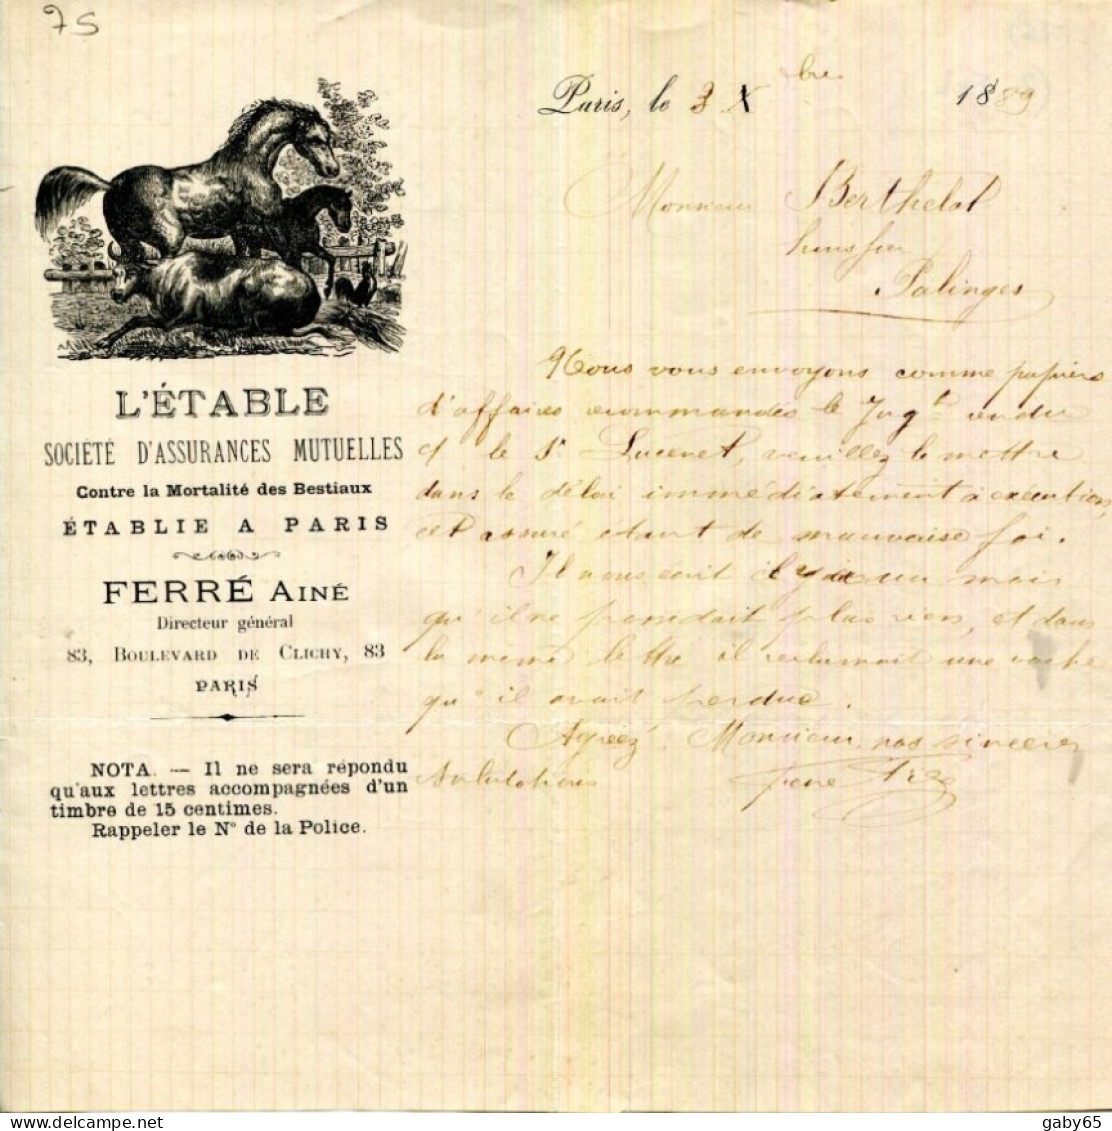 75
Paris, le 3 Xbre 1889
Monsieur Berthelot
huissier
Palinges
L'ÉTABLE
SOCIÉTÉ D'ASSURANCES MUTUELLES
Contre la Mortalité des Bestiaux
ÉTABLIE A PARIS
FERRÉ AINÉ
Directeur général
83, BOULEVARD DE CLICHY, 83
PARIS
NOTA. — Il ne sera répondu
qu'aux lettres accompagnées d'un
timbre de 15 centimes.
Rappeler le N° de la Police.
Nous vous envoyons comme papiers
d'affaires recommandés le Jugt rendu
ct le Sr Lucenet, veuillez le mettre
dans le délai immédiatement à exécution,
cet assuré etant de mauvaise foi.
Il nous écrit il y a un mois
qu'il ne possedait plus rien, et dans
la meme lettre il reclamait une vache
qu'il avait perdue.
Agreéz Monsieur, nos sincères
Salutations
gaby65